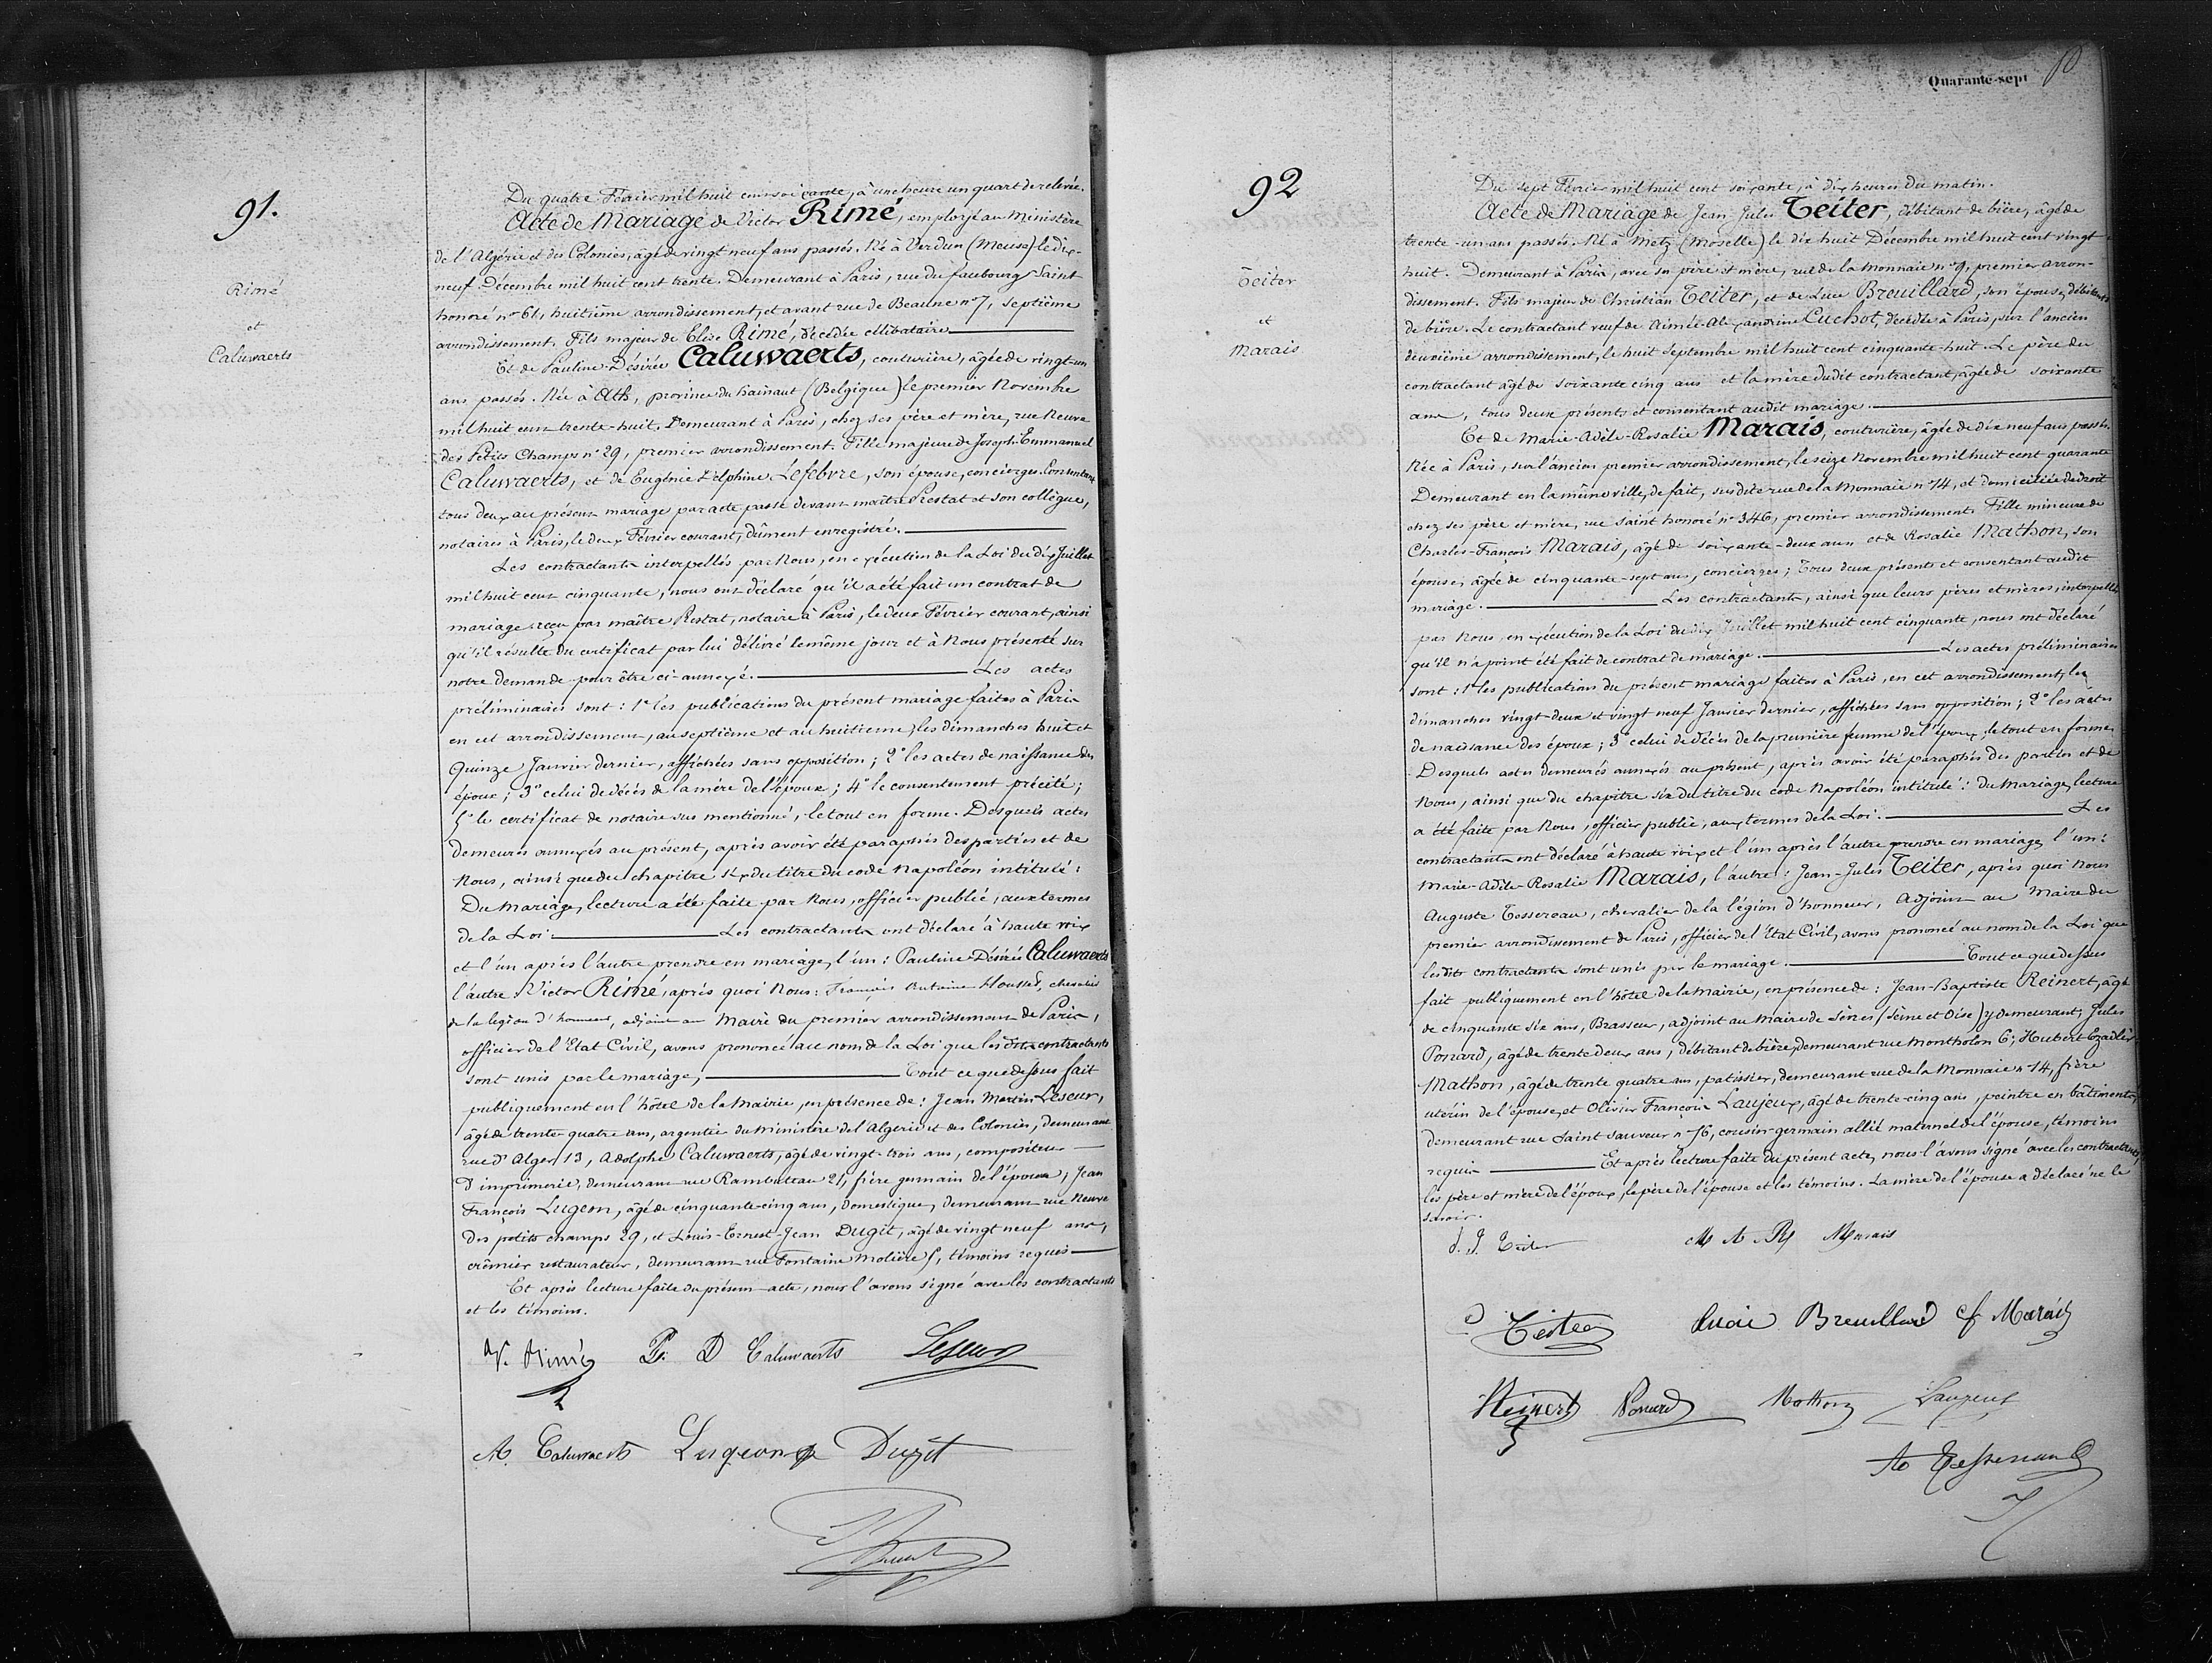 91.
Rimé
et
Caluwaerts
Du quatre Février mil huit cent soixante, à une heure un quart de relevée.
Acte de Mariage de Victor Rimé, employé au Ministère
de l'Algérie et des Colonies, âgé de vingt neuf ans passés. Né à Verdun (Meuse) le dix-
neuf Décembre mil huit cent trente. Demeurant à Paris, rue du faubourg Saint
honoré n° 61, huitième arrondissement, et avant rue de Beaune n° 7, septième
arrondissement. Fils majeur de Elise Rimé, décédée célibataire
Et de Pauline-Désirée Caluwaerts, couturière, âgée de vingt-un
ans passés. Née à Ath, province du hainaut (Belgique) le premier Novembre
mil huit cent trente-huit. Demeurant à Paris, chez ses père et mère, rue Neuve
des Petits Champs n° 29, premier arrondissement. Fille majeure de Joseph-Emmanuel
Caluwaerts, et de Eugénie Delphine Lefebvre, son épouse, concierges. Consentant
tous deux au présent mariage par acte passé devant maître Restat et son collègue,
notaires à Paris, le deux Février courant, dûment enregistré.
Les contractants interpellés par Nous, en exécution de la Loi du dix Juillet
mil huit cent cinquante, nous ont déclaré qu'il a été fait un contrat de
mariage reçu par maître Restat, notaire à Paris, le deux Février courant, ainsi
qu'il résulte du certificat par lui délivré le même jour et à Nous présenté sur
notre demande pour être ci-annexé. Les actes
préliminaires sont : 1° les publications du présent mariage faites à Paris
en cet arrondissement, au septième et au huitième, les dimanches huit et
Quinze Janvier dernier, affichées sans opposition ; 2° les actes de naissance des
époux ; 3° celui de décès de la mère de l'époux ; 4° le consentement précité ;
5° le certificat de notaire sus mentionné, le tout en forme. Desquels actes
demeurés annexés au présent, après avoir été paraphés des parties et de
Nous, ainsi que du chapitre six du titre du code Napoléon intitulé :
Du Mariage, lecture a été faite par Nous, officier public, aux termes
de la Loi. Les contractants ont déclaré à haute voix
et l'un après l'autre prendre en mariage, l'un : Pauline Désirée Caluwaerts
l'autre Victor Rimé, après quoi Nous : François Antoine Housset, chevalier
de la légion d'honneur, adjoint au Maire du premier arrondissement de Paris,
officier de l'Etat Civil, avons prononcé au nom de la Loi que les dits contractants
sont unis par le mariage, Tout ce que dessus fait
publiquement en l'hôtel de la Mairie, en présence de : Jean Martin Leseur,
âgé de trente quatre ans, argentier du Ministère de l'Algérie et des Colonies, demeurant
rue d'Alger 13, Adolphe Caluwaerts, âgé de vingt-trois ans, compositeur
d'imprimerie, demeurant rue Rambuteau 21, frère germain de l'épouse ; Jean
François Lugeon, âgé de cinquante cinq ans, domestique, demeurant rue Neuve
des petits champs 29, et Louis-Ernest-Jean Dugit, âgé de vingt neuf ans,
crêmier restaurateur, demeurant rue Fontaine Molière 5, témoins requis
Et après lecture faite du présent acte, nous l'avons signé avec les contractants
et les témoins.
V. Rimé P. D Caluwaerts Leseur
A. Caluwaerts Lugeon Dugit
Quarante-sept
92
Teiter
et
Marais
Du sept Février mil huit cent soixante, à dix heures du matin.
Acte de Mariage de Jean Jules Teiter, débitant de bière, âgé de
trente-un ans passés. Né à Metz (Moselle) le dix huit Décembre mil huit cent vingt
huit. Demeurant à Paris, avec ses père et mère, rue de la Monnaie n° 9, premier arron-
dissement. Fils majeur de Christian Teiter, et de Luce Breuillard, son épouse, débitants
de bière. Le contractant veuf de Aimée-Alexandrine Cuchot, décédée à Paris, sur l'ancien
deuxième arrondissement, le huit Septembre mil huit cent cinquante-huit. Le père du
contractant âgé de soixante cinq ans et la mère dudit contractant, âgée de soixante
ans, tous deux présents et consentant audit mariage.
Et de Marie-Adèle-Rosalie Marais, couturière, âgée de dix neuf ans passés.
Née à Paris, sur l'ancien premier arrondissement, le seize Novembre mil huit cent quarante
Demeurant en la même ville, de fait, susdite rue de la Monnaie n° 14, et domiciliée de droit
chez ses père et mère, rue Saint honoré n° 346, premier arrondissement. Fille mineure de
Charles-François Marais, âgé de soixante-deux ans et de Rosalie Mathon, son
épouse, âgée de cinquante-sept ans, concierges ; Tous deux présents et consentant audit
mariage. Les contractants, ainsi que leurs pères et mères, interpellés
par Nous, en exécution de la Loi du dix Juillet mil huit cent cinquante, nous ont déclaré
qu'il n'a point été fait de contrat de mariage. Les actes préliminaires
sont : 1° les publications du présent mariage faites à Paris, en cet arrondissement, les
dimanches vingt-deux et vingt neuf Janvier dernier, affichées sans opposition ; 2° les actes
de naissance des époux ; 3° celui de décès de la première femme de l'époux ; le tout en forme.
Desquels actes demeurés annexés au présent, après avoir été paraphés des parties et de
Nous, ainsi que du chapitre six du titre du code Napoléon intitulé : du Mariage, lecture
a été faite par Nous, officier public, aux termes de la Loi. Les
contractants ont déclaré à haute voix et l'un après l'autre prendre en mariage, l'un :
Marie-Adèle-Rosalie Marais, l'autre : Jean-Jules Teiter, après quoi Nous
Auguste Tessereau, chevalier de la légion d'honneur, Adjoint au Maire du
premier arrondissement de Paris, officier de l'Etat Civil, avons prononcé au nom de la Loi que
les dits contractants sont unis par le mariage. Tout ce que dessus
fait publiquement en l'hôtel de la Mairie, en présence de : Jean-Baptiste Reinert, âgé
de cinquante six ans, Brasseur, adjoint au Maire de Sèvres (Seine et Oise) y demeurant, Jules
Ponard, âgé de trente deux ans, débitant de bière, demeurant rue Montholon 6 ; Hubert
Mathon, âgé de trente quatre ans, patissier, demeurant rue de la Monnaie n° 14, frère
utérin de l'épouse, et Olivier François Laujeux, âgé de trente-cinq ans, peintre en bâtiments,
demeurant rue Saint Sauveur n° 16, cousin germain allié maternel de l'épouse, témoins
requis Et après lecture faite du présent acte, nous l'avons signé avec les contractants,
les père et mère de l'époux, le père de l'épouse et les témoins. La mère de l'épouse a déclaré ne le
savoir.
J. J. Teiter M A R Marais
Teiter Breuillard Marais
Reinert Ponard Mathon